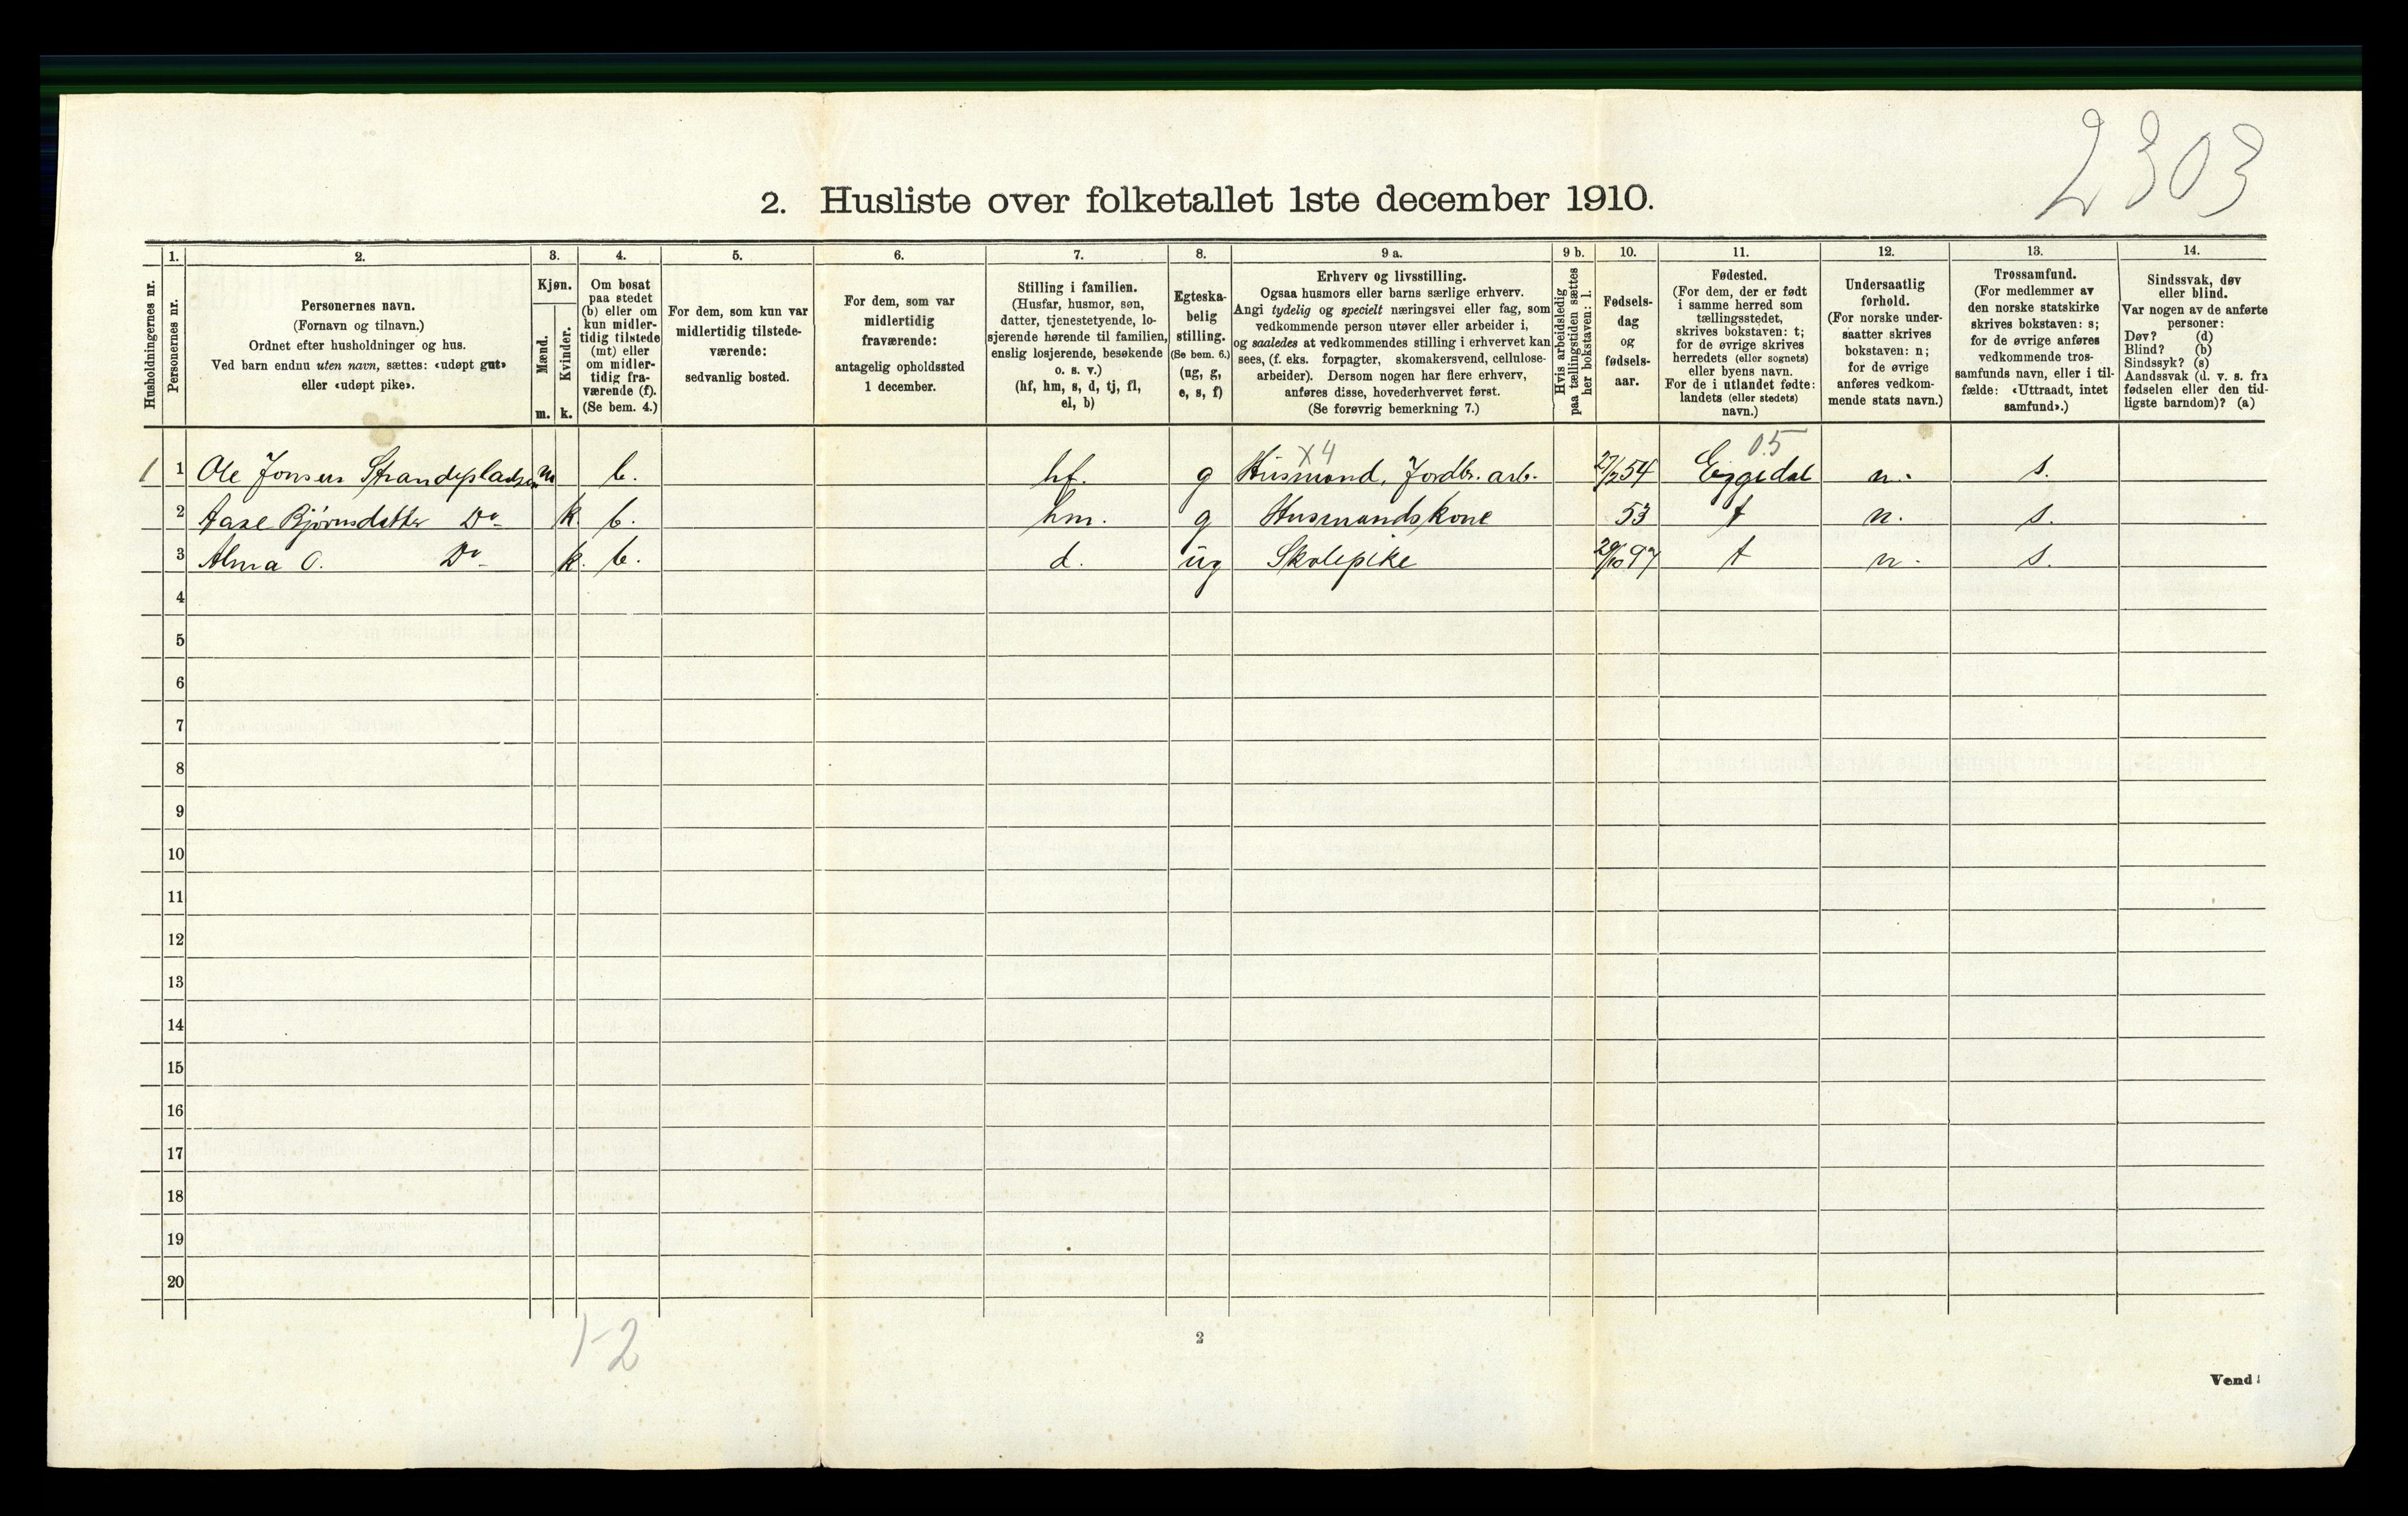 2303
2. Husliste over folketallet 1ste december 1910.
Husholdningernes nr.
1.
Personernes nr.
2.
Personernes navn.
(Fornavn og tilnavn.)
Ordnet efter husholdninger og hus.
Ved barn endnu uten navn, sættes: «udøpt gut»
eller «udøpt pike».
3.
Kjøn.
Mænd.
m.
Kvinder.
k.
4.
Om bosat
paa stedet
(b) eller om
kun midler-
tidig tilstede
(mt) eller
om midler-
tidig fra-
værende (f).
(Se bem. 4.)
5.
For dem, som kun var
midlertidig tilstede-
værende:
sedvanlig bosted.
6.
For dem, som var
midlertidig
fraværende:
antagelig opholdssted
1 december.
7.
Stilling i familien.
(Husfar, husmor, søn,
datter, tjenestetyende, lo-
sjerende hørende til familien,
enslig losjerende, besøkende
o. s. v.)
(hf, hm, s, d, tj, fl,
el, b)
8.
Egteska-
belig
stilling.
(Se bem. 6.)
(ug, g,
e, s, f)
9 a.
Erhverv og livsstilling.
Ogsaa husmors eller barns særlige erhverv.
Angi tydelig og specielt næringsvei eller fag, som
vedkommende person utøver eller arbeider i,
og saaledes at vedkommendes stilling i erhvervet kan
sees, (f. eks. forpagter, skomakersvend, cellulose-
arbeider). Dersom nogen har flere erhverv,
anføres disse, hovederhvervet først.
(Se forøvrig bemerkning 7.)
9 b.
Hvis arbeidsledig
paa tællingstiden sættes
her bokstaven: l.
10.
Fødsels-
dag
og
fødsels-
aar.
11.
Fødested.
(For dem, der er født
i samme herred som
tællingsstedet,
skrives bokstaven: t;
for de øvrige skrives
herredets (eller sognets)
eller byens navn.
For de i utlandet fødte:
landets (eller stedets)
navn.)
12.
Undersaatlig
forhold.
(For norske under-
saatter skrives
bokstaven: n;
for de øvrige
anføres vedkom-
mende stats navn.)
13.
Trossamfund.
(For medlemmer av
den norske statskirke
skrives bokstaven: s;
for de øvrige anføres
vedkommende tros-
samfunds navn, eller i til-
fælde: «Uttraadt, intet
samfund».)
14.
Sindssvak, døv
eller blind.
Var nogen av de anførte
personer:
Døv? (d)
Blind? (b)
Sindssyk? (s)
Aandssvak (d. v. s. fra
fødselen eller den tid-
ligste barndom)? (a)
X4 05
1 1 Ole Jonsen Strandepladsen m b. hf. g Husmand, Jordbr. arb. 27/2 54 Eggedal n. s.
2 Aase Bjørnsdatter Do k. b. hm. g Husmandskone 53 t n. s.
3 Alma O. Do k. b. d. ug Skolepike 29/10 97 t n. s.
4
5
6
7
8
9
10
11
12
13
14
15
16
17
18
19
20
1-2
2
Vend!